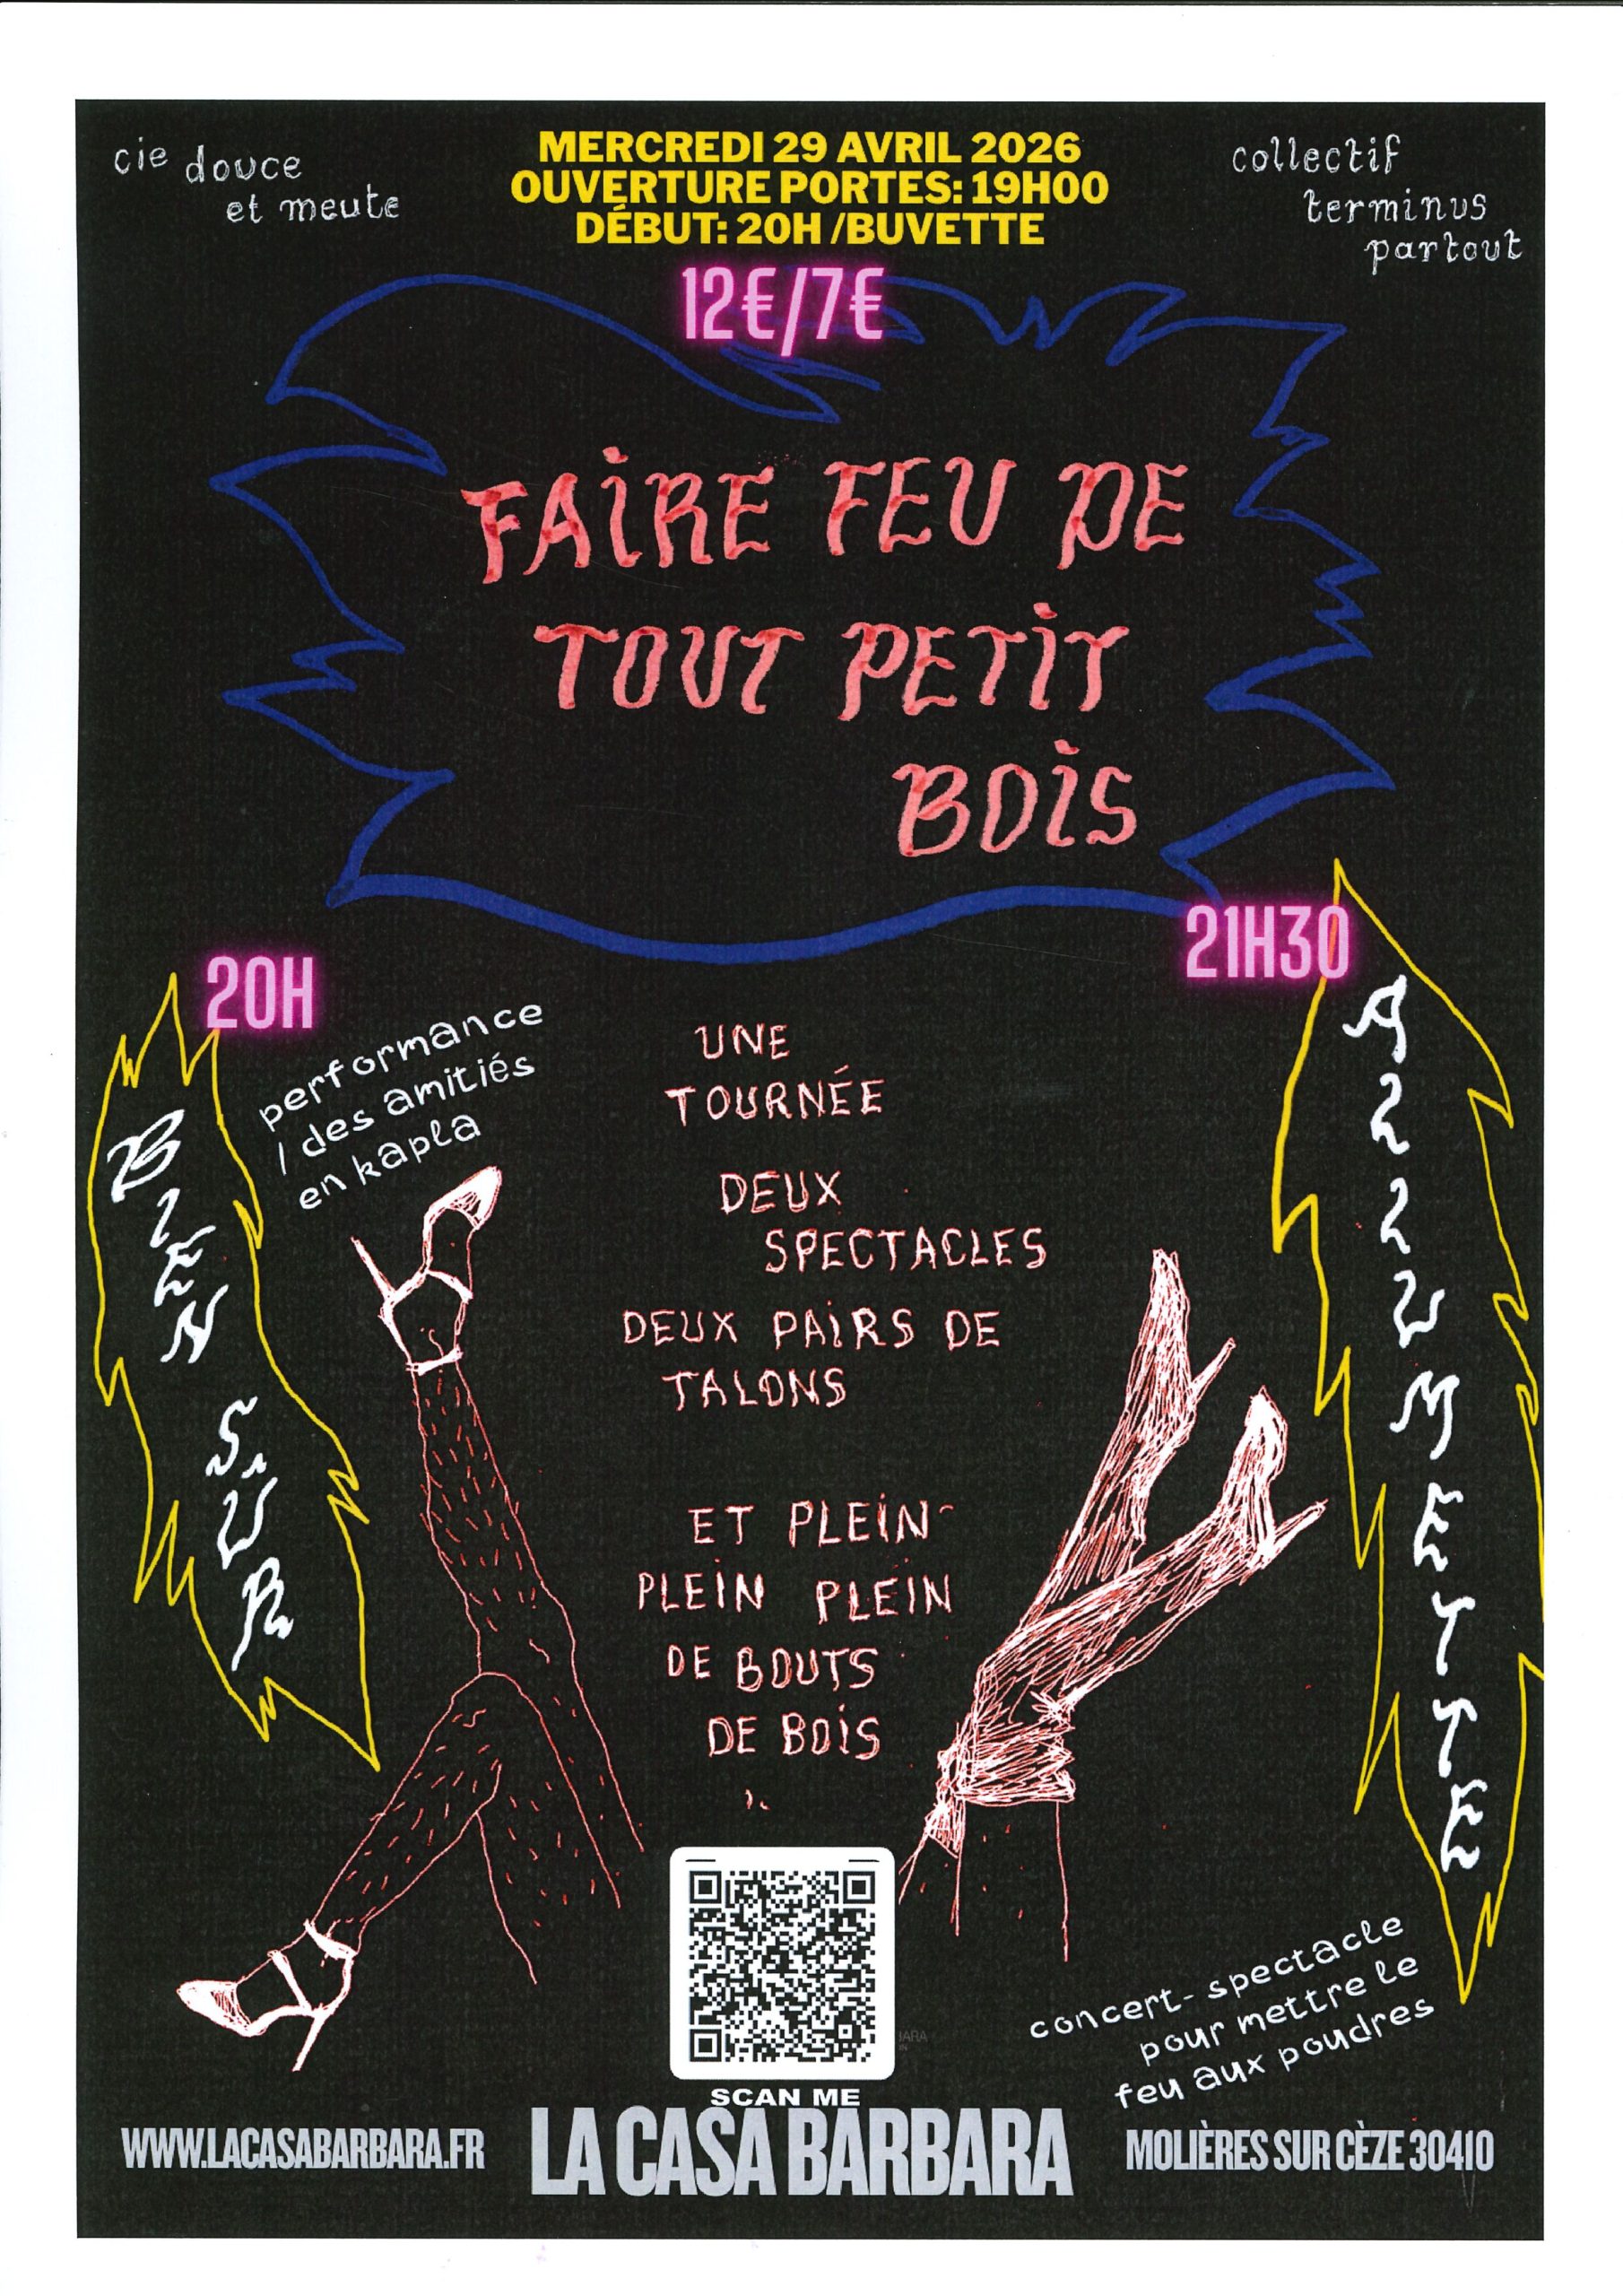 cie douce
et meute
MERCREDI 29 AVRIL 2026
OUVERTURE PORTES: 19H00
DÉBUT: 20H /BUVETTE
12€/7€
collectif
terminus
partout
FAIRE FEU DE
TOUT PETIT
BOIS
20H
BIEN SÛR
performance
/ des amitiés
en kapla
UNE
TOURNÉE
DEUX
SPECTACLES
DEUX PAIRS DE
TALONS
ET PLEIN-
PLEIN PLEIN
DE BOUTS
DE BOIS
21H30
ALLUMETTE
concert-spectacle
pour mettre le
feu aux poudres
SCAN ME
WWW.LACASABARBARA.FR
LA CASA BARBARA
MOLIÈRES SUR CÈZE 30410